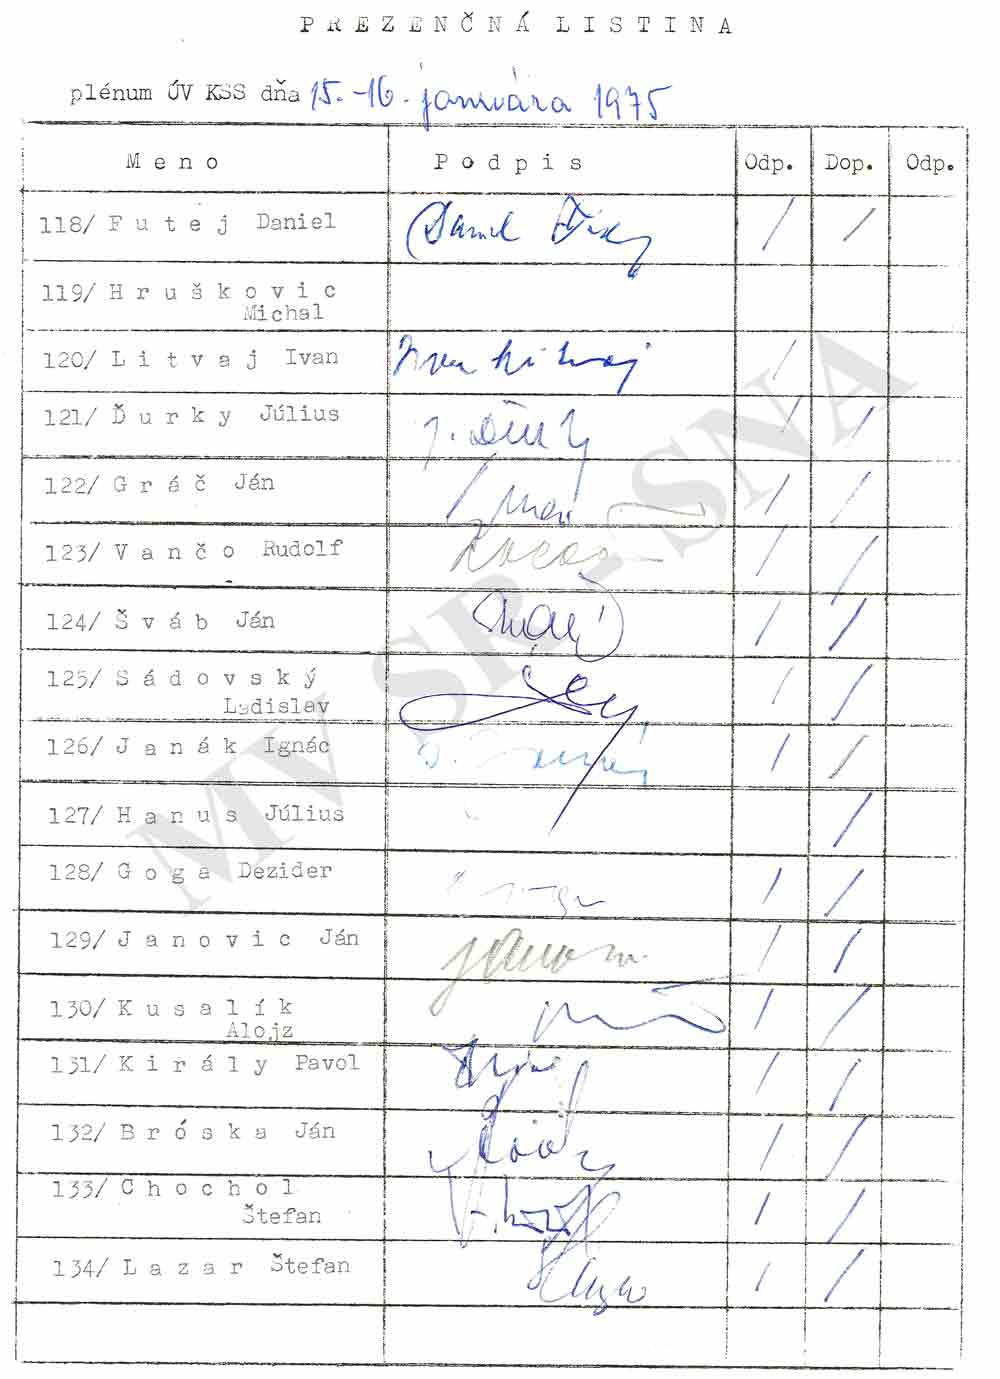 PREZENČNÁ LISTINA
plénum ÚV KSS dňa 15.-16. januára 1975
Meno Podpis Odp. Dop. Odp.
118/ Futej Daniel
119/ Hruškovic
Michal
120/ Litvaj Ivan Ivan Litvaj
121/ Ďurky Július J. Ďurky
122/ Gráč Ján
123/ Vančo Rudolf
124/ Šváb Ján
125/ Sádovský
Ladislav
126/ Janák Ignác
127/ Hanus Július
128/ Goga Dezider
129/ Janovic Ján
130/ Kusalík
Alojz
131/ Király Pavol
132/ Bróska Ján
133/ Chochol
Štefan
134/ Lazar Štefan
MV SR - SNA